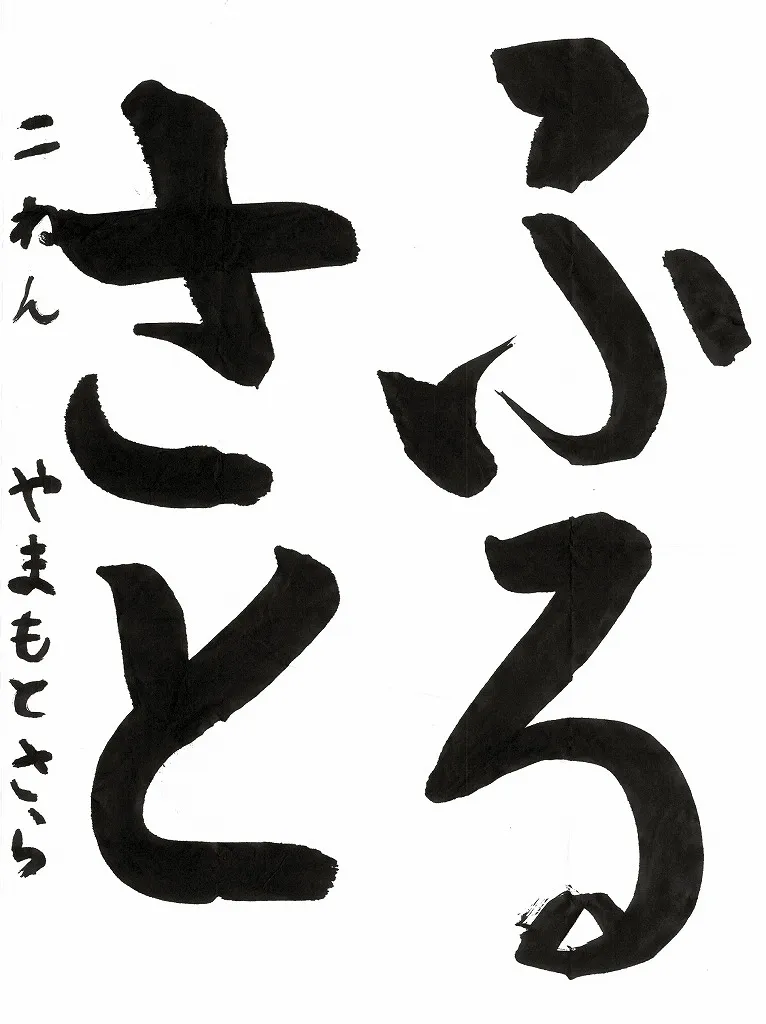 ふる
さと
二ねん やまもとさら